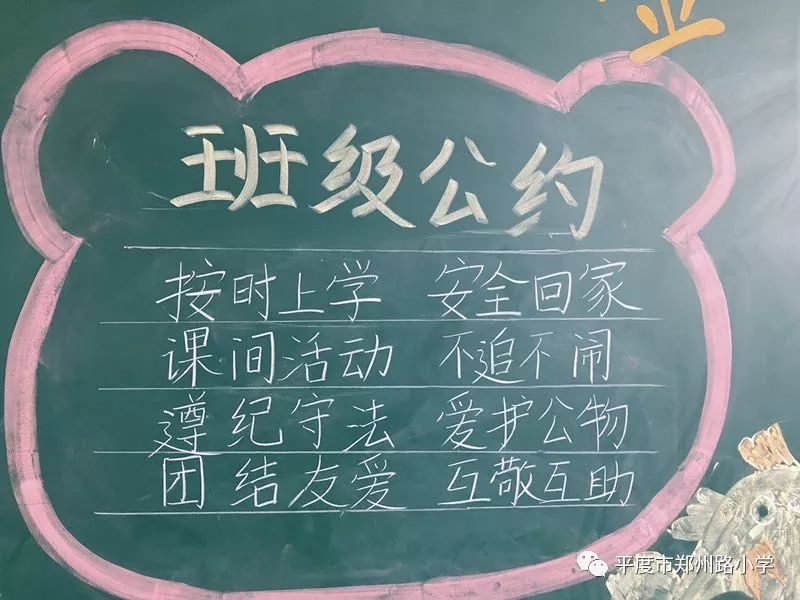 班级公约
按时上学 安全回家
课间活动 不追不闹
遵纪守法 爱护公物
团结友爱 互敬互助
平度市郑州路小学